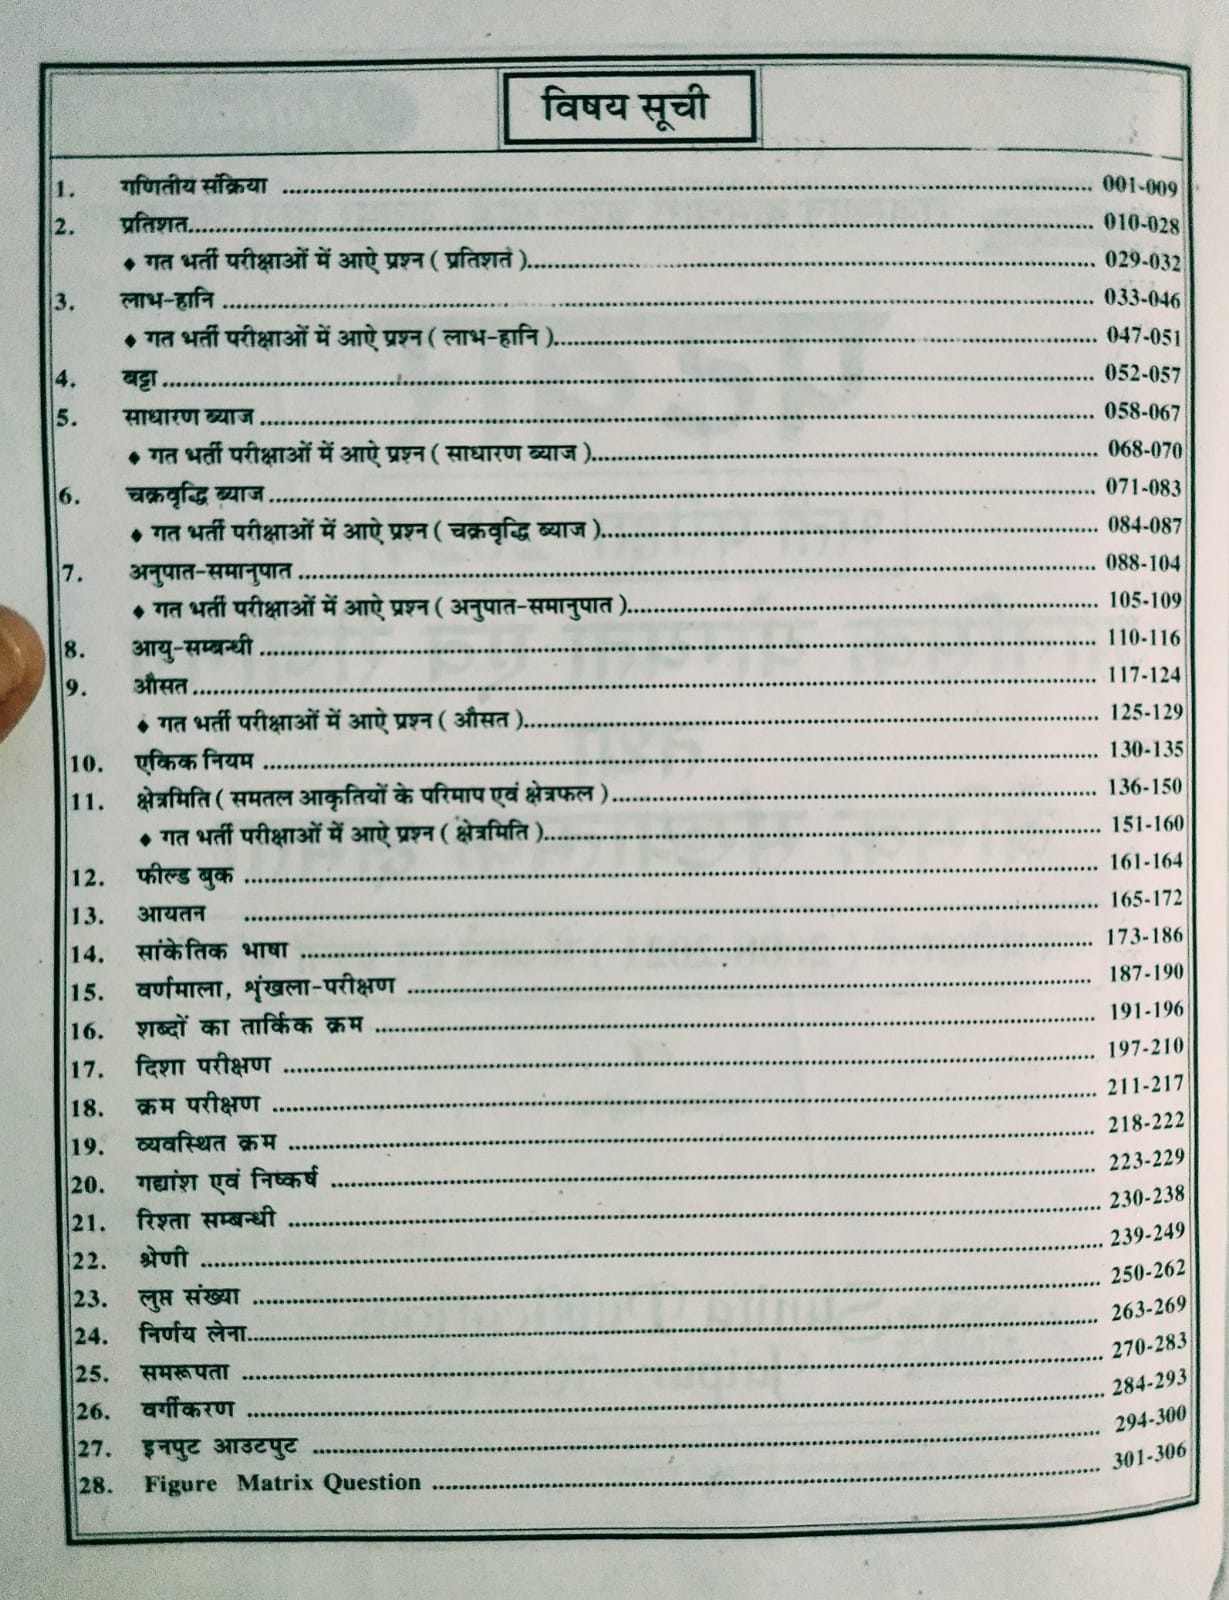 विषय सूची
1. गणितीय संक्रिया ........ 001-009
2. प्रतिशत........ 010-028
♦ गत भर्ती परीक्षाओं में आऐ प्रश्न ( प्रतिशत )........ 029-032
3. लाभ-हानि ........ 033-046
♦ गत भर्ती परीक्षाओं में आऐ प्रश्न ( लाभ-हानि )........ 047-051
4. बट्टा ........ 052-057
5. साधारण ब्याज ........ 058-067
♦ गत भर्ती परीक्षाओं में आऐ प्रश्न ( साधारण ब्याज )........ 068-070
6. चक्रवृद्धि ब्याज ........ 071-083
♦ गत भर्ती परीक्षाओं में आऐ प्रश्न ( चक्रवृद्धि ब्याज )........ 084-087
7. अनुपात-समानुपात ........ 088-104
♦ गत भर्ती परीक्षाओं में आऐ प्रश्न ( अनुपात-समानुपात )........ 105-109
8. आयु-सम्बन्धी ........ 110-116
9. औसत ........ 117-124
♦ गत भर्ती परीक्षाओं में आऐ प्रश्न ( औसत )........ 125-129
10. एकिक नियम ........ 130-135
11. क्षेत्रमिति ( समतल आकृतियों के परिमाप एवं क्षेत्रफल )........ 136-150
♦ गत भर्ती परीक्षाओं में आऐ प्रश्न ( क्षेत्रमिति )........ 151-160
12. फील्ड बुक ........ 161-164
13. आयतन ........ 165-172
14. सांकेतिक भाषा ........ 173-186
15. वर्णमाला, शृंखला-परीक्षण ........ 187-190
16. शब्दों का तार्किक क्रम ........ 191-196
17. दिशा परीक्षण ........ 197-210
18. क्रम परीक्षण ........ 211-217
19. व्यवस्थित क्रम ........ 218-222
20. गद्यांश एवं निष्कर्ष ........ 223-229
21. रिश्ता सम्बन्धी ........ 230-238
22. श्रेणी ........ 239-249
23. लुप्त संख्या ........ 250-262
24. निर्णय लेना........ 263-269
25. समरूपता ........ 270-283
26. वर्गीकरण ........ 284-293
27. इनपुट आउटपुट ........ 294-300
28. Figure Matrix Question ........ 301-306